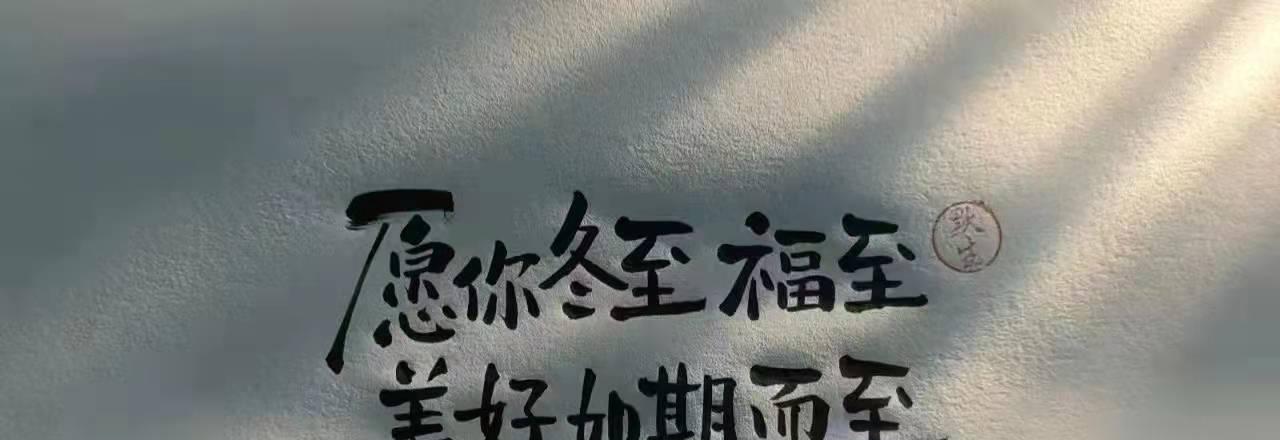 愿你冬至福至
美好如期而至